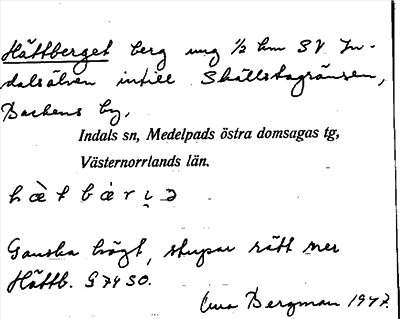 Hättberget berg ung ½ km SV In-
dalsälven intill Skällstagränsen,
Backens by,
Indals sn, Medelpads östra domsagas tg,
Västernorrlands län.
Ganska högt, stupar rätt ner
Hättb. G 74 SO.
Bergman 1947.